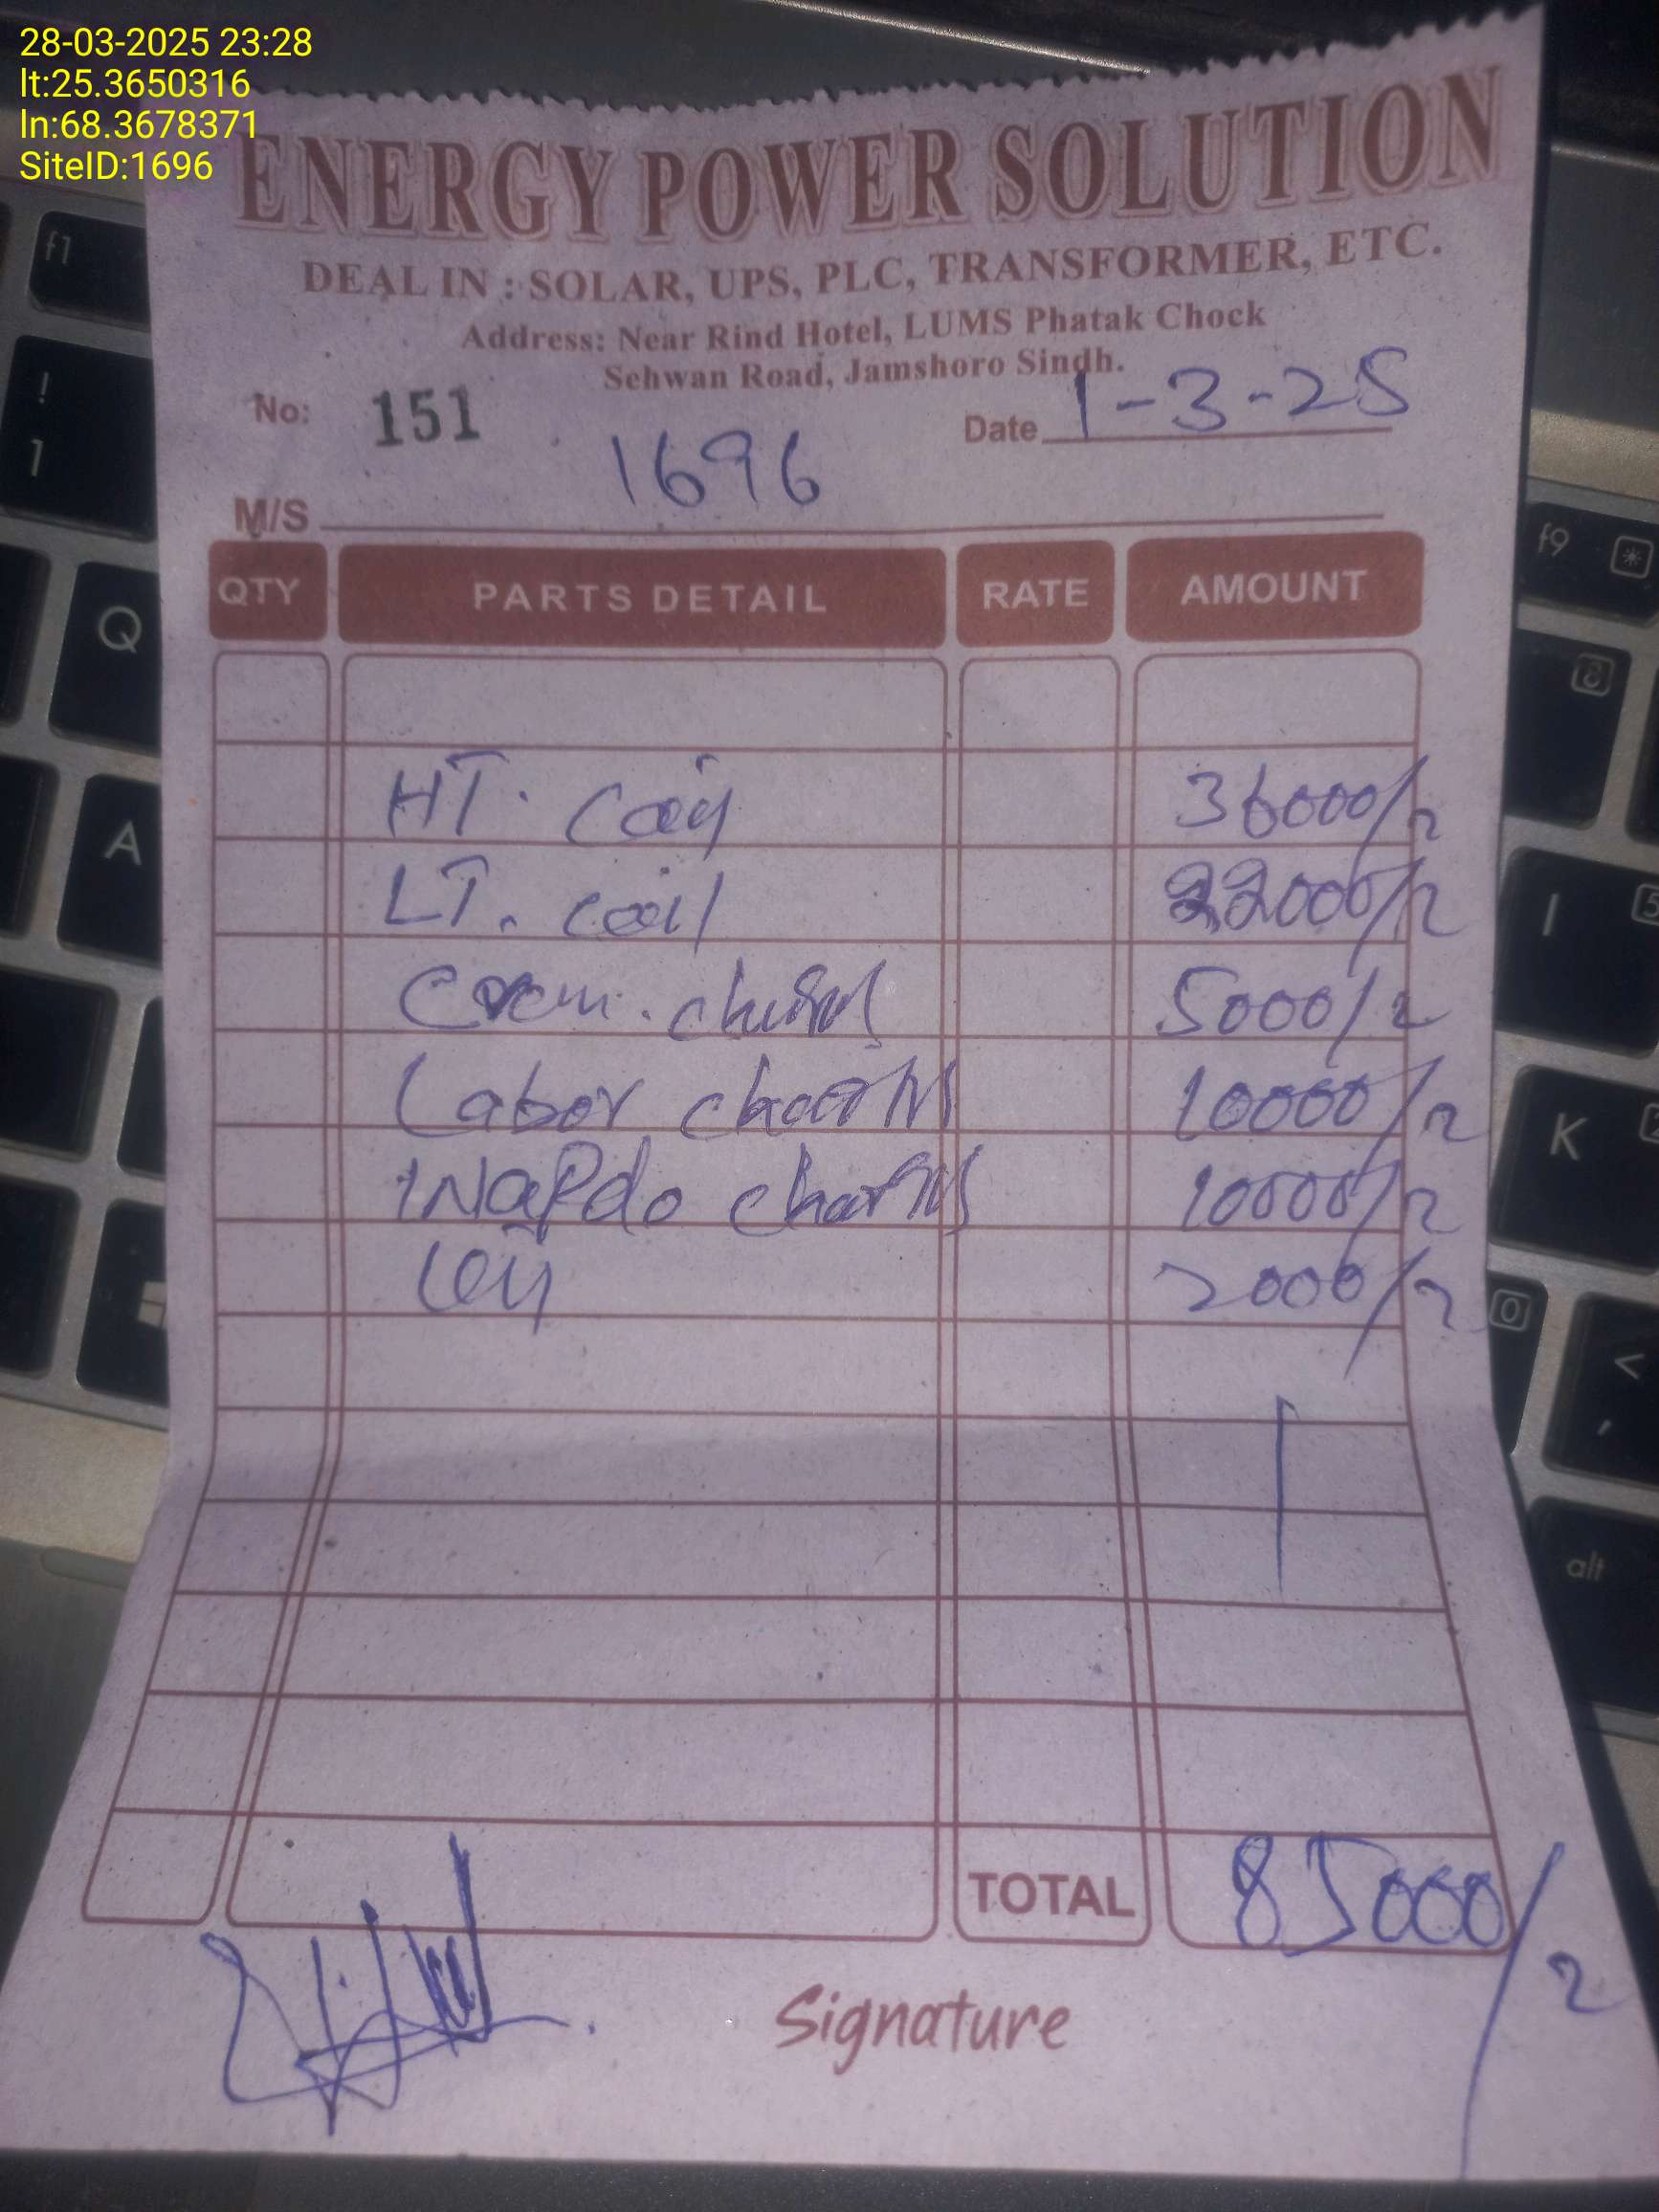 28-03-2025 23:28
lt:25.3650316
ln:68.3678371
SiteID:1696
ENERGY POWER SOLUTION
DEAL IN : SOLAR, UPS, PLC, TRANSFORMER, ETC.
Address: Near Rind Hotel, LUMS Phatak Chock
Sehwan Road, Jamshoro Sindh.
No: 151 Date 1-3-25
M/S 1696
QTY PARTS DETAIL RATE AMOUNT
HT. 36000/
LT. coil 22000/
5000/
Labor 10000/
10000/
2000/
TOTAL 85000/
Signature
f1
!
1
Q
A
f9
I
K
<
,
alt